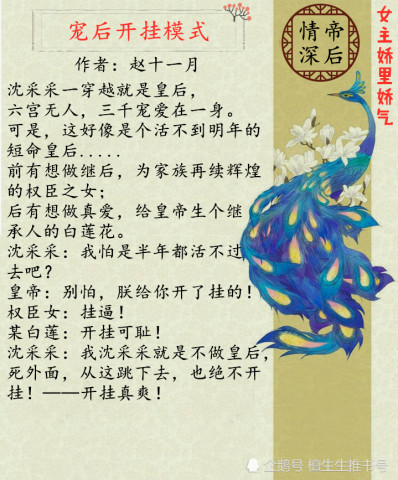 宠后开挂模式
作者：赵十一月
沈采采一穿越就是皇后，
六宫无人，三千宠爱在一身。
可是，这好像是个活不到明年的
短命皇后.....
前有想做继后，为家族再续辉煌
的权臣之女；
后有想做真爱，给皇帝生个继
承人的白莲花。
沈采采：我怕是半年都活不过
去吧？
皇帝：别怕，朕给你开了挂的！
权臣女：挂逼！
某白莲：开挂可耻！
沈采采：我沈采采就是不做皇后，
死外面，从这跳下去，也绝不开
挂！——开挂真爽！
情帝
深后
女主娇里娇气
企鹅号 楦生生推书号